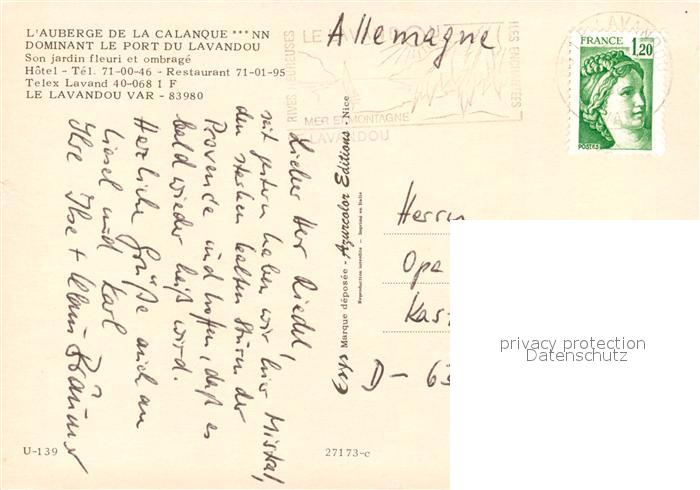 L'AUBERGE DE LA CALANQUE *** NN
DOMINANT LE PORT DU LAVANDOU
Son jardin fleuri et ombragé
Hôtel - Tél. 71-00-46 - Restaurant 71-01-95
Telex Lavand 40-068 1 F
LE LAVANDOU VAR - 83980
Allemagne
RIVES FLEUREUSES
LE LAVANDOU
MER ET MONTAGNE
LE LAVANDOU
FRANCE
1,20
POSTES
Lieber Herr Riedel,
seit gestern haben wir hier Mistral,
den starken kalten Sturm der
Provence und hoffen, daß es
bald wieder heiß wird.
Herzliche Grüße auch an
Liesel und Karl
Ihre Ilse + Klaus
Marque déposée - Azurcolor Editions - Nice
Reproduction interdite - Imprimé en Italie
Herrn
Ope
Kas
D - 63
privacy protection
Datenschutz
U-139
27173-c